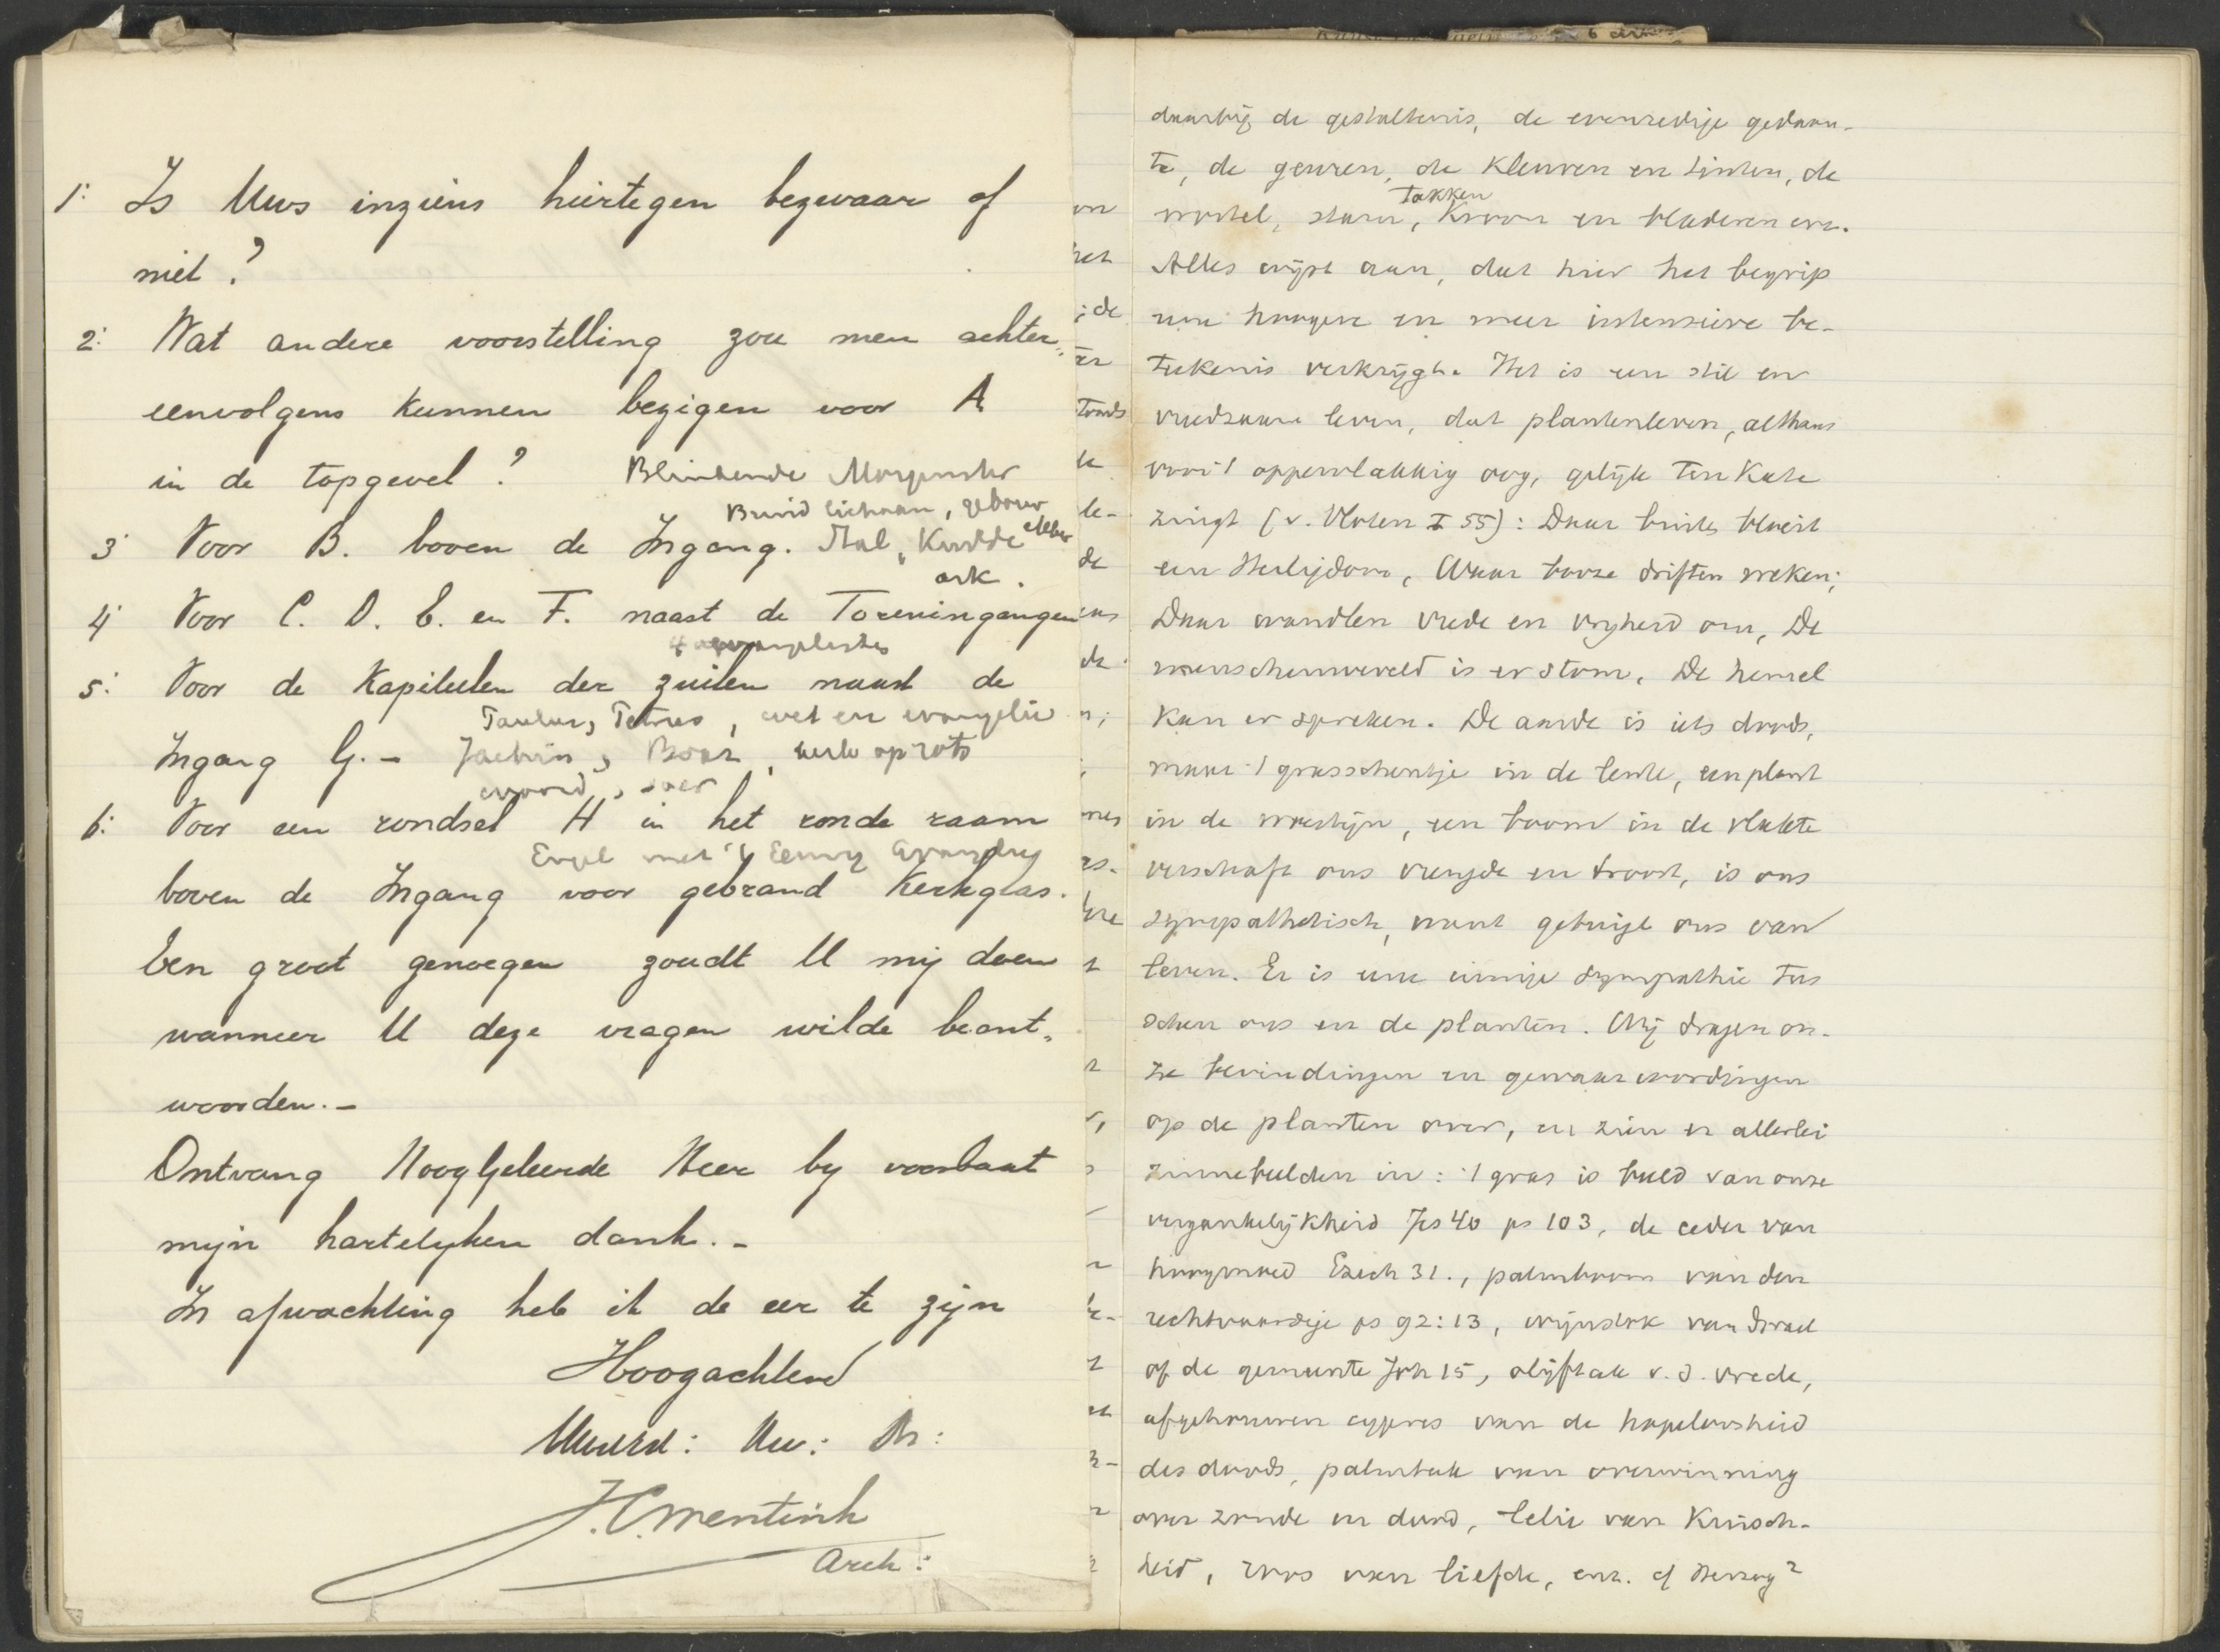 1: Is Uws inziens hiertegen bezwaar of
niet?
2: Wat andere voorstelling zou men achter„
eenvolgens kunnen bezigen voor A
in de topgevel? Blinkende Morgenster
Bruid lichaam, gebouw
3 Voor B. boven de Ingang. Stal, Kudde
ark.
4 Voor C. D. E. en F. naast de Toreningangen
4 evangelistes
5: Voor de Kapiteelen der zuilen naast de
Paulus, Petrus, wet en evangelie
Ingang G. – Jachin, Boaz, kerk op rots
woord,
6: Voor een rondsel H in het ronde raam
Engel met 't Eeuwig Evangelie
boven de Ingang voor gebrand Kerkglas.
Een groot genoegen zoudt U mij doen
wanneer U deze vragen wilde beant„
woorden. –
Ontvang HoogGeleerde Heer by voorbaat
mijn hartelyken dank. –
In afwachting heb ik de eer te zijn
Hoogachtend
Uw: Dr:
J.C. Wentink
Arch:
6 Art
daarbij de gestaltenis, de evenredige gedaan-
te, de geuren, de Kleuren en tinten, de
Takken
wortel, stam, Kroon en bladeren enz.
Alles wijst aan, dat hier het begrip
eene hoogere en meer intensieve be-
teekenis verkrijgt. Het is een stil en
vreedzaam leven, dat plantenleven, althans
voor 't oppervlakkig oog, gelijk Ten Kate
zingt (v. Vloten I 55): Daar buiten bloeit
een Heiligdom, Waar booze driften weken;
Daar wandlen vrede en vryheid om, De
menschenwereld is er stom, De hemel
Kan er spreken. De aarde is iets doods,
maar 't grasscheutje in de lente, een plant
in de woestijn, een boom in de vlakte
verschaft ons vreugde en troost, is ons
sympathetisch, want getuigt ons van
leven. Er is eene innige sympathie tus
schen ons en de planten. Wij dragen on-
ze bevindingen en gewaarwordingen
op de planten over, en zien er allerlei
zinnebeelden in: 't gras is beeld van onze
vergankelijkheid Jes 40 ps 103, de ceder van
hoogmoed Ezech 31., palmboom van den
rechtvaardige ps 92:13, wijnstok van Israel
of de gemeente Joh 15, olijftak v. d. vrede,
afgehouwen cypres van de hopeloosheid
des doods, palmtak van overwinning
over zonde en dood, lelie van Kuisch-
heid, roos van liefde, enz. cf Herzog²